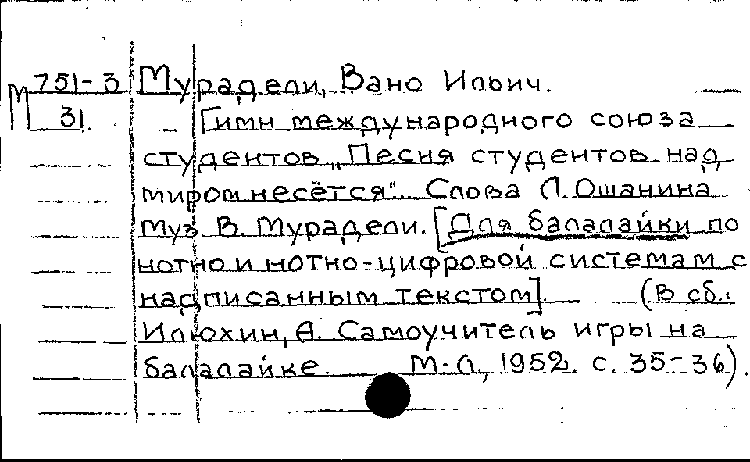 М 751-3
31.
Мурадели, Вано Ильич.
Гимн международного союза
студентов „Песня студентов над
миром несётся". Слова Л. Ошанина
Муз. В. Мурадели. [Для балалайки по
нотно и нотно-цифровой системам с
надписанным текстом] (В сб.:
Илюхин, А. Самоучитель игры на
балалайке М-Л, 1952. с. 35-36).